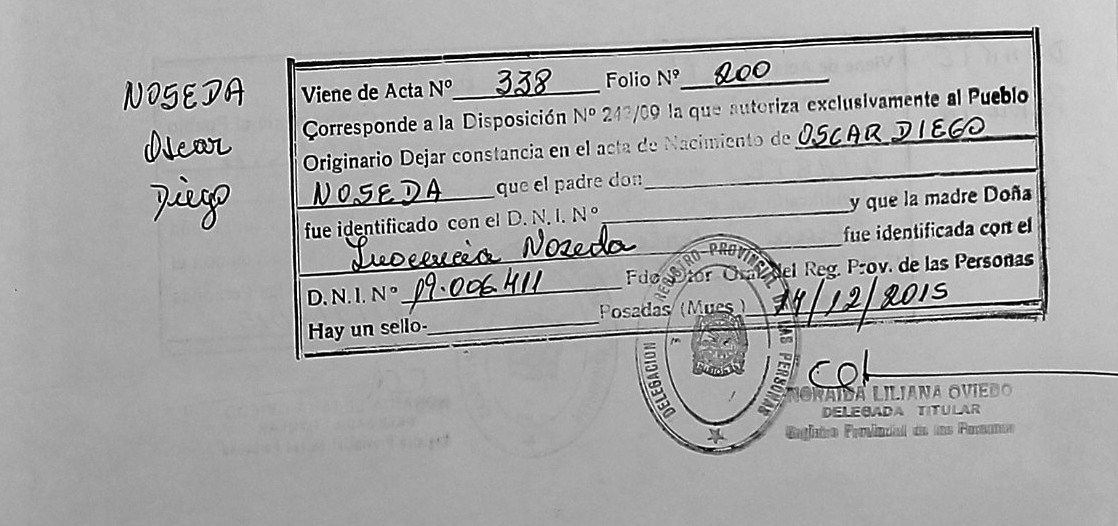 NOSEDA
Oscar
Diego
Viene de Acta Nº 338 Folio Nº 200
Corresponde a la Disposición Nº 243/09 la que autoriza exclusivamente al Pueblo
Originario Dejar constancia en el acta de Nacimiento de OSCAR DIEGO
NOSEDA que el padre don
fue identificado con el D.N.I. Nº y que la madre Doña
Inocencia Nozeda fue identificada con el
D.N.I. Nº 19.006.411 Fdo Dtor Gral del Reg. Prov. de las Personas
Hay un sello- Posadas (Mnes.) 14/12/2015
DELEGACION REGISTRO PROVINCIAL DE LAS PERSONAS
MISIONES
NORAIDA LILIANA OVIEDO
DELEGADA TITULAR
Registro Provincial de las Personas